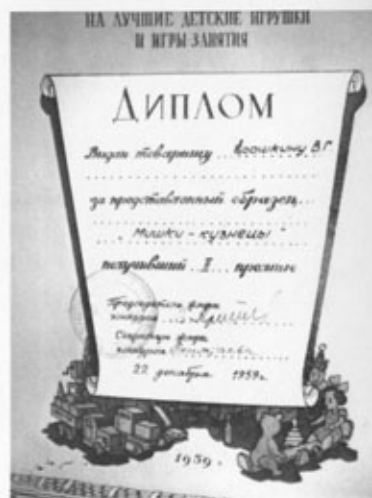 НА ЛУЧШИЕ ДЕТСКИЕ ИГРУШКИ
И ИГРЫ-ЗАНЯТИЯ
ДИПЛОМ
Выдан товарищу В.Г.
за представленный образец
"Мишки-кузнецы"
получивший II премию
Председатель жюри
конкурса
Секретарь жюри
конкурса
22 декабря 1959г.
1959